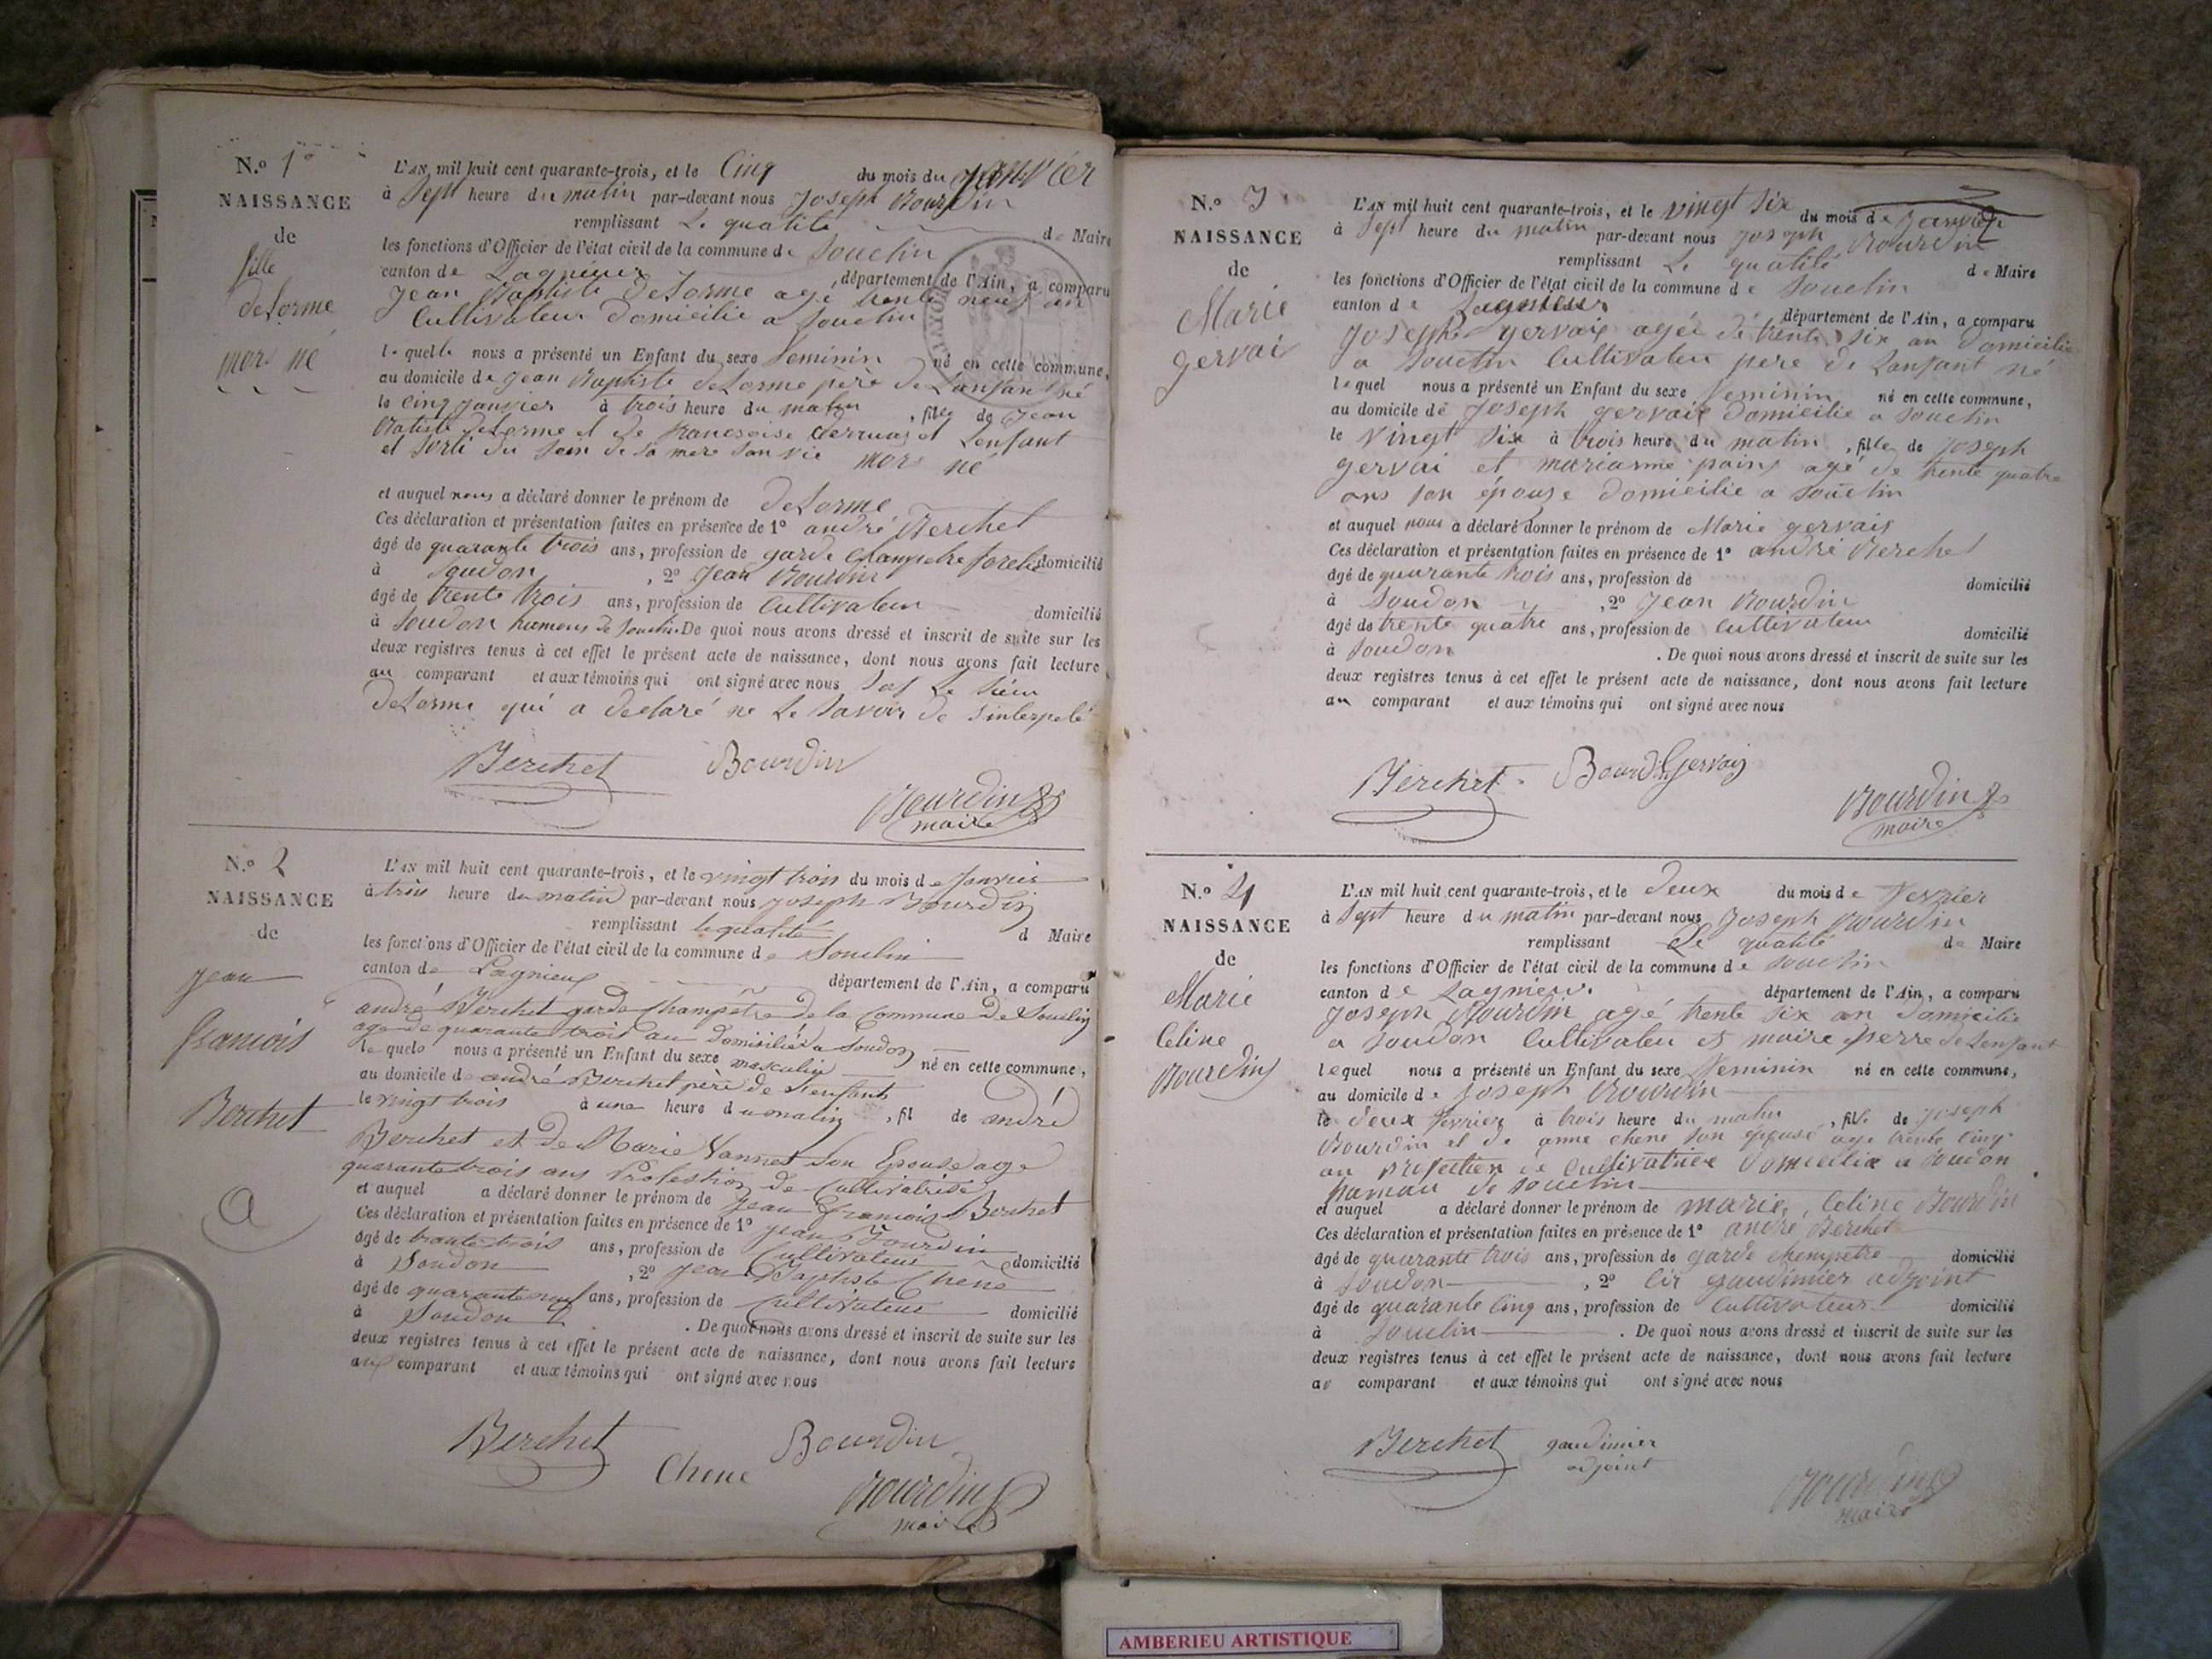 N.º 1º
NAISSANCE
de
fille
deLorme
mors né
L'AN mil huit cent quarante-trois, et le Cinq du mois du janvier
à Sept heure du matin par-devant nous Joseph Bourdin
remplissant Le qualité de Maire
les fonctions d'Officier de l'état civil de la commune de Souclin
canton de Lagnieux, département de l'Ain, a comparu
Jean Baptiste deLorme agé trente neuf an
Cultivateur domicilié a Souclin
lequelle nous a présenté un Enfant du sexe feminin né en cette commune,
au domicile de Jean Baptiste deLorme père de Lanfant né
le cinq janvier à trois heure du matin, fille de Jean
Batiste deLorme et de francsoise et Lenfant
et sorti du sein de sa mere san vie mors né
et auquel nous a déclaré donner le prénom de deLorme
Ces déclaration et présentation faites en présence de 1º andré Berchet
âgé de quarante trois ans, profession de garde champetre domicilié
à Soudon, 2º Jean Bourdin
âgé de trente trois ans, profession de Cultivateur domicilié
à Soudon de Souclin. De quoi nous avons dressé et inscrit de suite sur les
deux registres tenus à cet effet le présent acte de naissance, dont nous avons fait lecture
au comparant et aux témoins qui ont signé avec nous Le Sieur
deLorme qui a declaré ne Le Savoir de
Berchet Bourdin
Bourdin
maire
N.º 2
NAISSANCE
de
Jean
francois
Berchet
L'AN mil huit cent quarante-trois, et le vingt trois du mois de Janvier
à trois heure du matin par-devant nous Joseph Bourdin
remplissant le qualité d Maire
les fonctions d'Officier de l'état civil de la commune de Souclin
canton de Lagnieux département de l'Ain, a comparu
andré Berchet garde champêtre de la Commune de Souclin
age de quarante trois an domicilié a Soudon
lequel nous a présenté un Enfant du sexe masculin né en cette commune,
au domicile de andré Berchet père de l'enfant
le vingt trois à une heure du matin, fil de andré
Berchet et de Marie Vannet son Epouse age
quarante trois ans Profession de Cultivatrice
et auquel a déclaré donner le prénom de Jean francois Berchet
Ces déclaration et présentation faites en présence de 1º jean Bourdin
âgé de trante trois ans, profession de Cultivateur domicilié
à Soudon, 2º Jean Baptiste Chene
âgé de quarante neuf ans, profession de Cultivateur domicilié
à Soudon. De quoi nous avons dressé et inscrit de suite sur les
deux registres tenus à cet effet le présent acte de naissance, dont nous avons fait lecture
aux comparant et aux témoins qui ont signé avec nous
Berchet Bourdin
Chene
Bourdin
maire
N.º 3
NAISSANCE
de
Marie
gervai
L'AN mil huit cent quarante-trois, et le vingt Six du mois de Janvier
à Sept heure du matin par-devant nous Joseph Bourdin
remplissant Le qualité de Maire
les fonctions d'Officier de l'état civil de la commune de Souclin
canton de Lagnieux département de l'Ain, a comparu
Joseph gervais agée de trente six an domicilie
a Souclin Cultivateu pere de Lanfant né
lequel nous a présenté un Enfant du sexe feminin né en cette commune,
au domicile de Joseph gervais domicilie a Souclin
le vingt Six à trois heure du matin, fille de Joseph
gervai et marianne agé de trente quatre
ans son épouse domicilie a Souclin
et auquel nous a déclaré donner le prénom de Marie gervais
Ces déclaration et présentation faites en présence de 1º andré Berchet
âgé de quarante trois ans, profession de domicilié
à Soudon, 2º Jean Bourdin
âgé de trente quatre ans, profession de Cultivateur domicilié
à Soudon. De quoi nous avons dressé et inscrit de suite sur les
deux registres tenus à cet effet le présent acte de naissance, dont nous avons fait lecture
au comparant et aux témoins qui ont signé avec nous
Berchet Bourdin Gervais
Bourdin
maire
N.º 4
NAISSANCE
de
Marie
Celine
Bourdin
L'AN mil huit cent quarante-trois, et le deux du mois de fevrier
à Sept heure du matin par-devant nous Joseph Bourdin
remplissant Le qualité de Maire
les fonctions d'Officier de l'état civil de la commune de Souclin
canton de Lagnieu. département de l'Ain, a comparu
Joseph Bourdin agé trente Six an domicilie
a Soudon Cultivateu et maire perre de Lenfant
lequel nous a présenté un Enfant du sexe feminin né en cette commune,
au domicile de Joseph Bourdin
le deux fevrier à trois heure du matin, fille de Joseph
Bourdin et de anne chene son épouse age trente cinq
an profection de Cultivatrice domicilie a Soudon
hamau de Souclin
et auquel a déclaré donner le prénom de marie, Celine Bourdin
Ces déclaration et présentation faites en présence de 1º andré Berchet
âgé de quarante trois ans, profession de garde chempetre domicilié
à Soudon, 2º gaudimier adjoint
âgé de quarante Cinq ans, profession de Cultivateur domicilié
à Souclin. De quoi nous avons dressé et inscrit de suite sur les
deux registres tenus à cet effet le présent acte de naissance, dont nous avons fait lecture
au comparant et aux témoins qui ont signé avec nous
Berchet gaudimier
adjoint
Bourdin
maire
AMBERIEU ARTISTIQUE